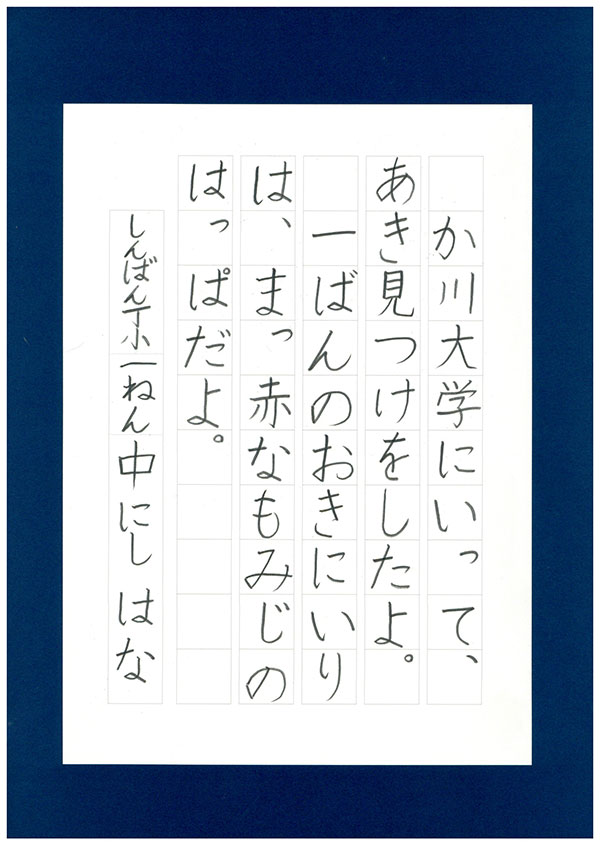 か川大学にいって、
あき見つけをしたよ。
一ばんのおきにいり
は、まっ赤なもみじの
はっぱだよ。
しんばん丁小一ねん中にしはな